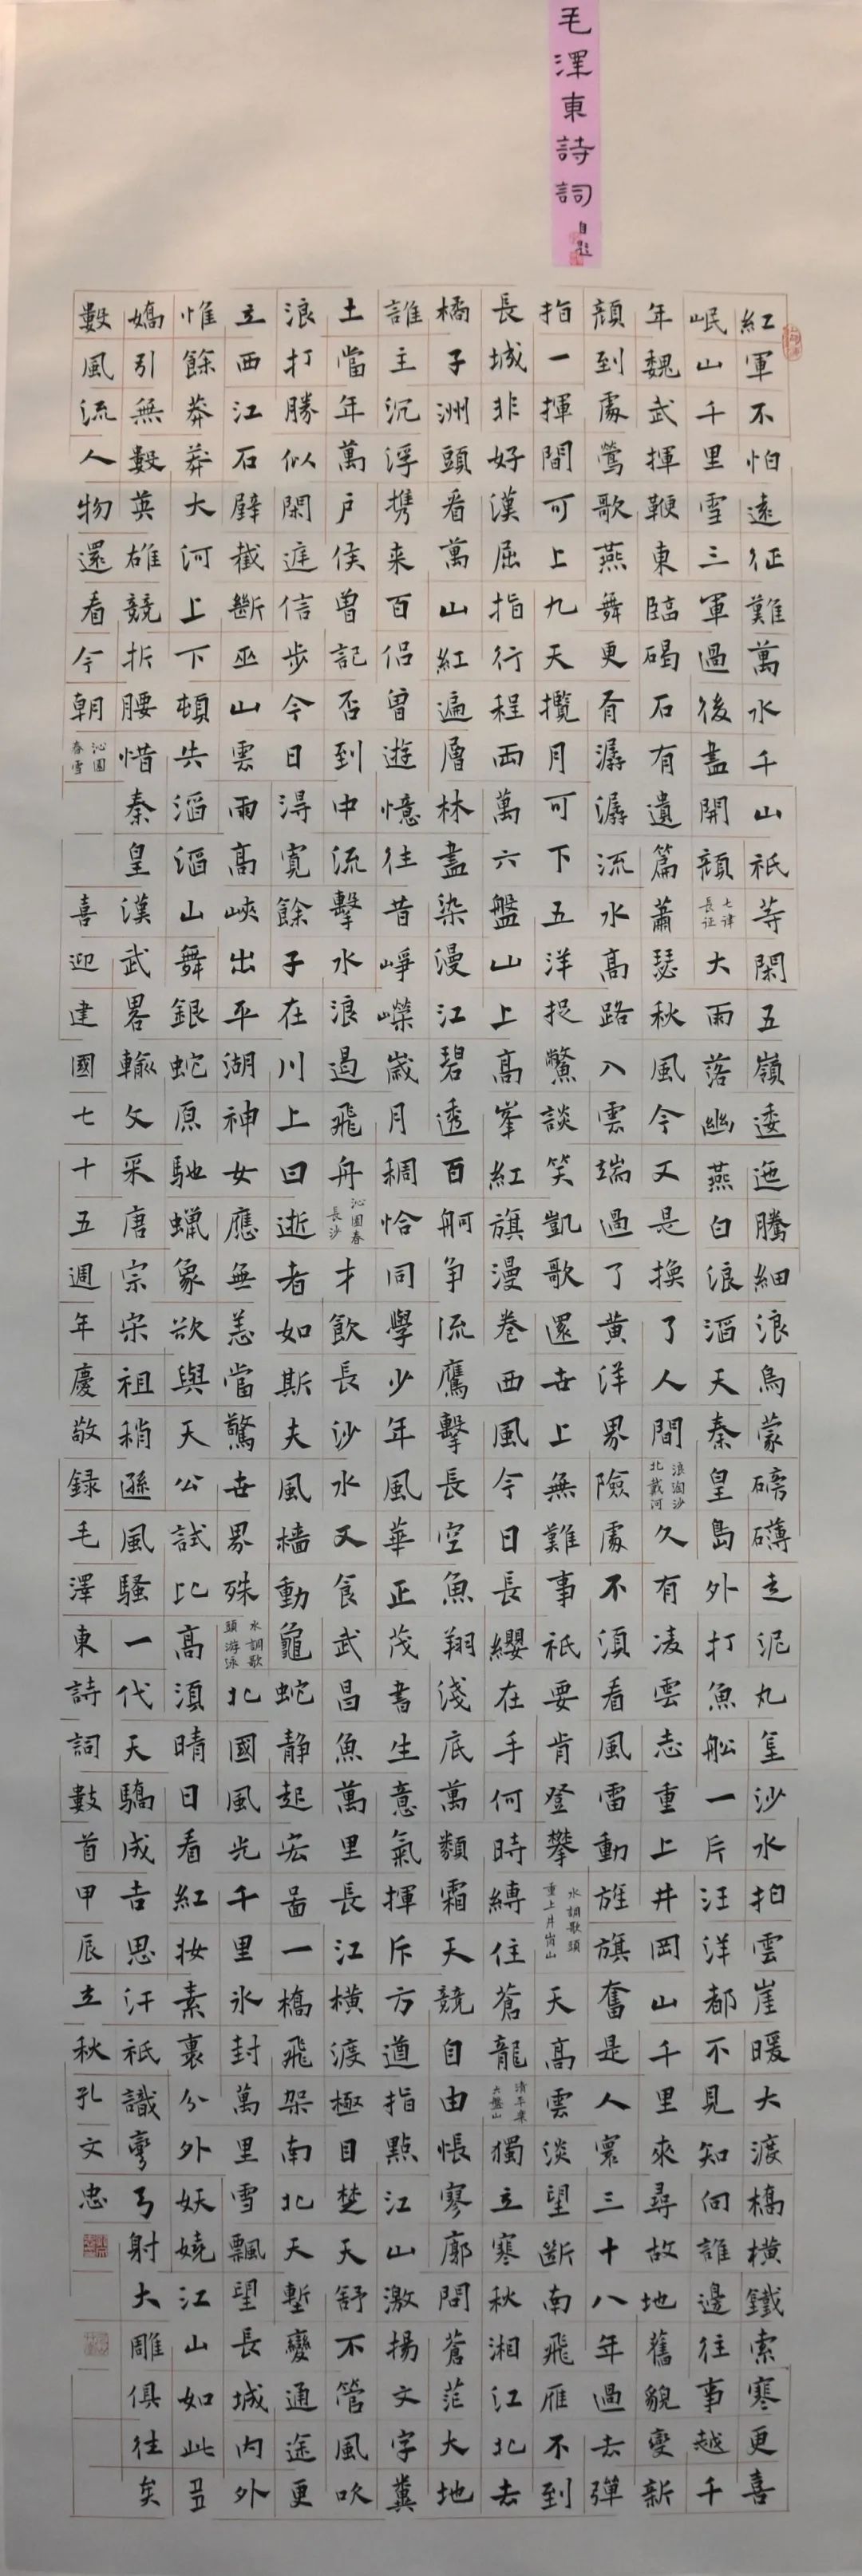 毛澤東詩詞 自題
紅軍不怕遠征難萬水千山祇等閑五嶺逶迤騰細浪烏蒙磅礴走泥丸金沙水拍雲崖暖大渡橋橫鐵索寒更喜
岷山千里雪三軍過後盡開顏 七律長征 大雨落幽燕白浪滔天秦皇島外打魚船一片汪洋都不見知向誰邊往事越千
年魏武揮鞭東臨碣石有遺篇蕭瑟秋風今又是換了人間 浪淘沙北戴河 久有凌雲志重上井岡山千里來尋故地舊貌變新
顏到處鶯歌燕舞更有潺潺流水高路入雲端過了黃洋界險處不須看風雷動旌旗奮是人寰三十八年過去彈
指一揮間可上九天攬月可下五洋捉鱉談笑凱歌還世上無難事祇要肯登攀 水調歌頭重上井岗山 天高雲淡望斷南飛雁不到
長城非好漢屈指行程兩萬六盤山上高峯紅旗漫卷西風今日長纓在手何時縛住蒼龍 清平樂六盤山 獨立寒秋湘江北去
橘子洲頭看萬山紅遍層林盡染漫江碧透百舸争流鷹擊長空魚翔淺底萬類霜天競自由悵寥廓問蒼茫大地
誰主沉浮携来百侶曾遊憶往昔崢嶸歲月稠恰同學少年風華正茂書生意氣揮斥方遒指點江山激揚文字糞
土當年萬戶侯曾記否到中流擊水浪遏飛舟 沁園春長沙 才飲長沙水又食武昌魚萬里長江橫渡極目楚天舒不管風吹
浪打勝似閑庭信步今日得寬餘子在川上曰逝者如斯夫風檣動龜蛇静起宏啚一橋飛架南北天塹變通途更
立西江石壁截斷巫山雲雨高峽出平湖神女應無恙當驚世界殊 水調歌頭游泳 北國風光千里氷封萬里雪飄望長城内外
惟餘莽莽大河上下頓失滔滔山舞銀蛇原馳蠟象欲與天公試比高須晴日看紅妝素裹分外妖嬈江山如此多
嬌引無數英雄競折腰惜秦皇漢武畧輸文采唐宗宋祖稍遜風騷一代天驕成吉思汗祇識彎弓射大雕俱往矣
數風流人物還看今朝 沁園春雪 喜迎建國七十五週年慶敬録毛澤東詩詞數首甲辰立秋孔文忠